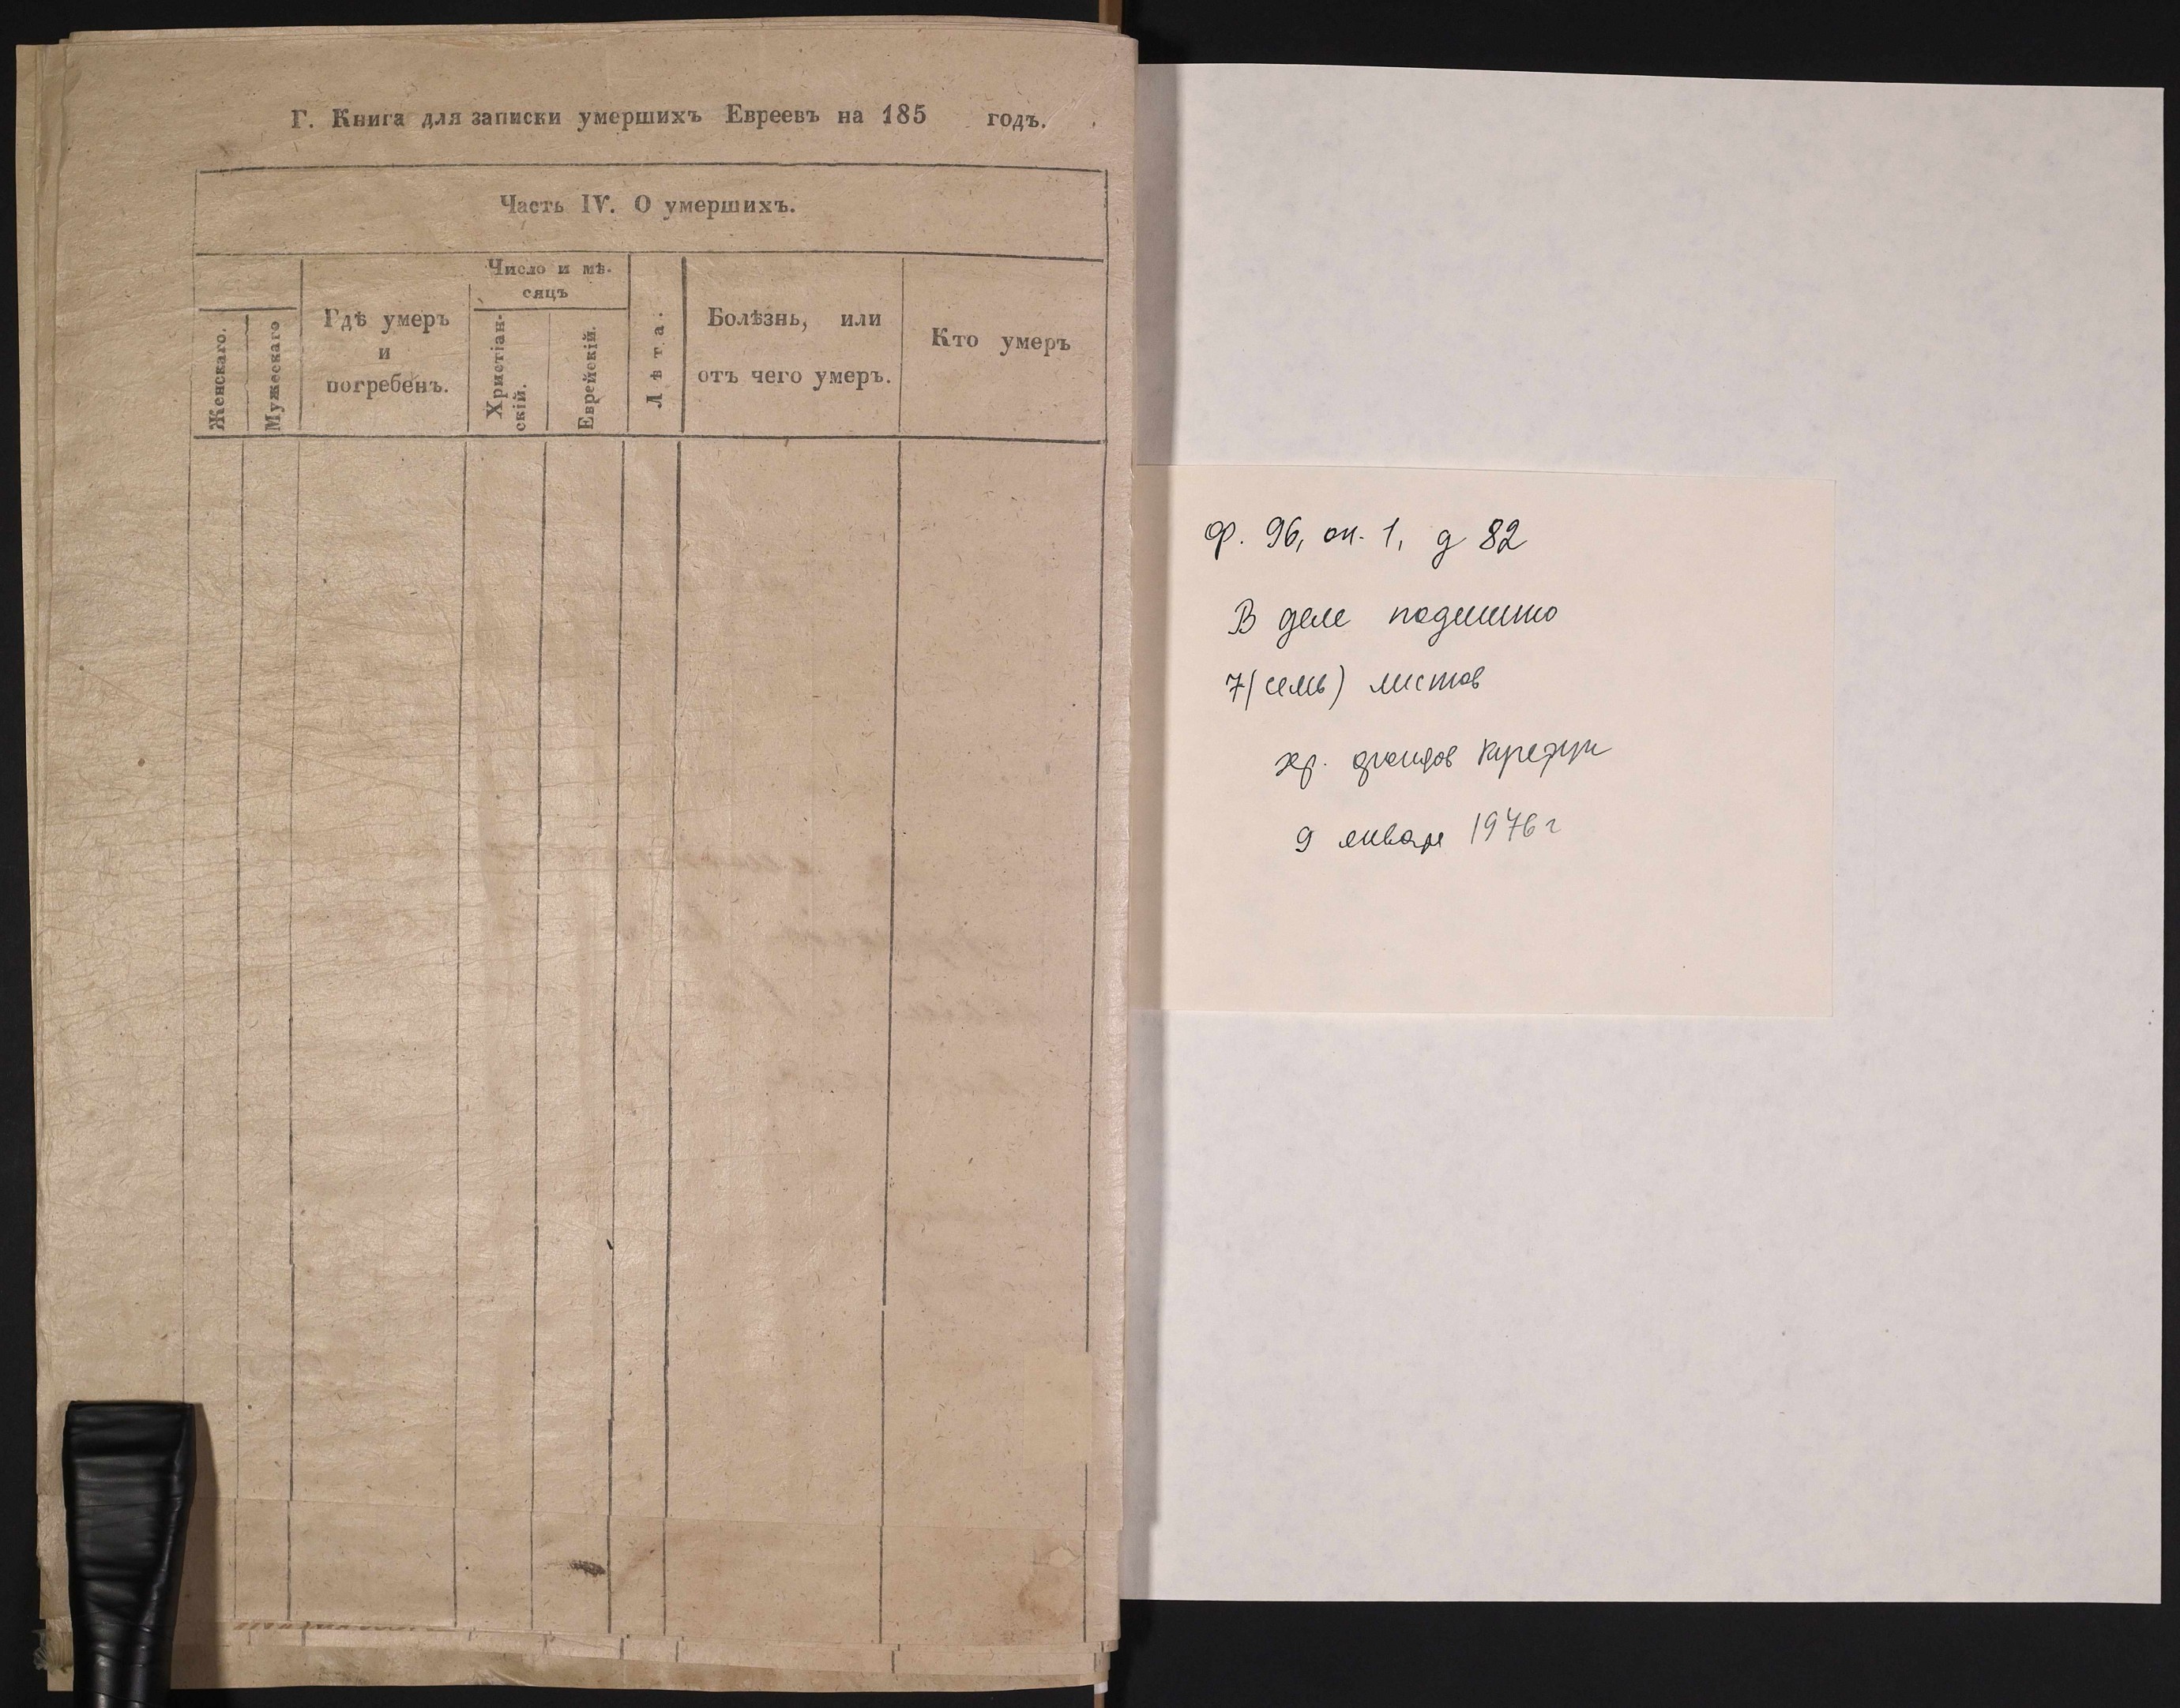 Г. Книга для записки умершихъ Евреевъ на 185 годъ.
Часть IV. О умершихъ.
Женскаго.
Мужескаго
Гдѣ умеръ
и
погребенъ.
Число и мѣ-
сяцъ
Христіан-
скій.
Еврейскій.
Лѣта:
Болѣзнь, или
отъ чего умеръ.
Кто умеръ
ф. 96, оп. 1, д 82
В деле подшито
7(семь) листов
хр. фондов
9 января 1976 г